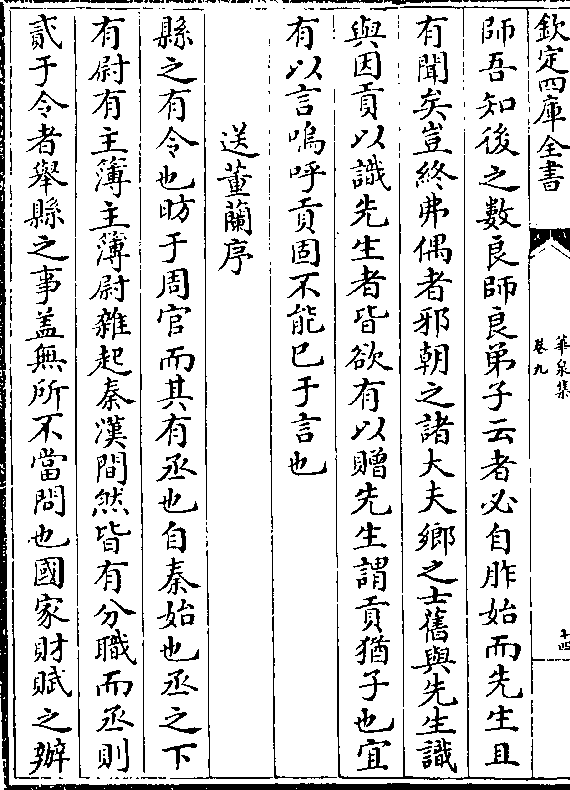 欽定四庫全書
華泉集
卷九
十四
師吾知後之數良師良弟子云者必自胙始而先生且
有聞矣豈終弗偶者邪朝之諸大夫鄉之士舊與先生識
與因貢以識先生者皆欲有以贈先生謂貢猶子也宜
有以言嗚呼貢固不能已于言也
送董蘭序
縣之有令也昉于周官而其有丞也自秦始也丞之下
有尉有主簿主簿尉雜起秦漢間然皆有分職而丞則
貳于令者舉縣之事盖無所不當問也國家財賦之辦